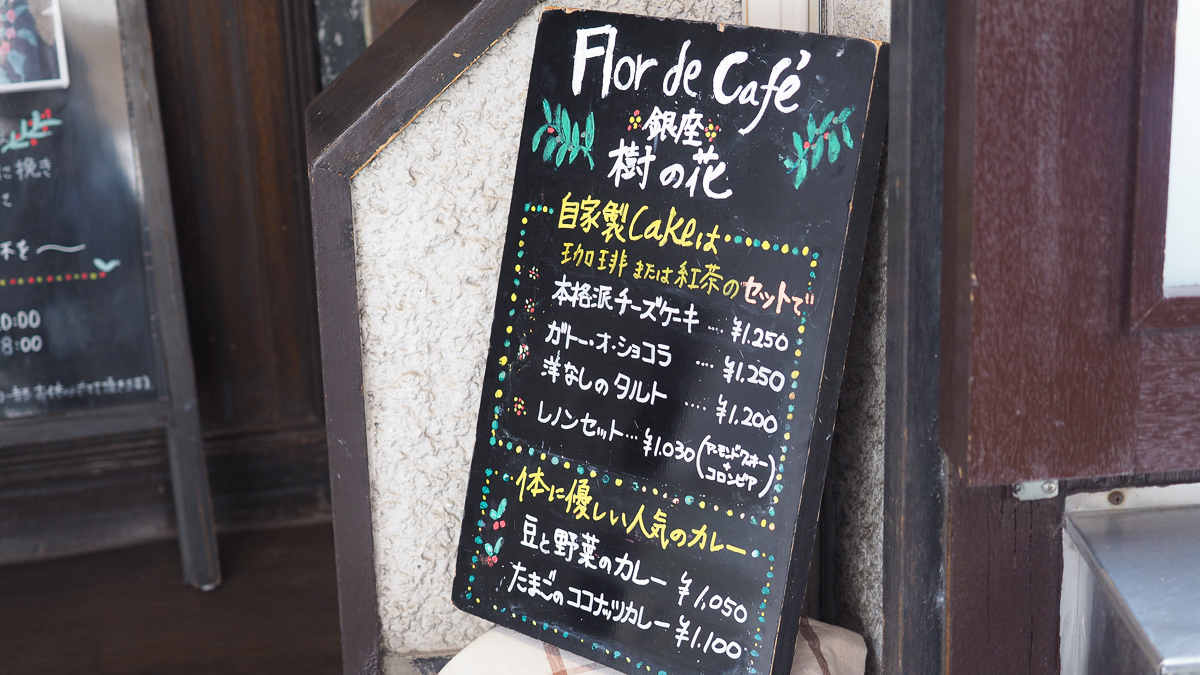 Flor de Café
銀座
樹の花
自家製Cakeは
珈琲または紅茶のセットで
本格派チーズケーキ ‥‥ ¥1.250
ガトー・オ・ショコラ ‥‥ ¥1.250
洋なしのタルト ‥‥ ¥1.200
レノンセット… ¥1.030 (アーモンドクッキー
+
コロンビア)
体に優しい人気のカレー
豆と野菜のカレー ¥1,050
たまごのココナッツカレー ¥1.100
に挽き
を〜
0:00
8:00